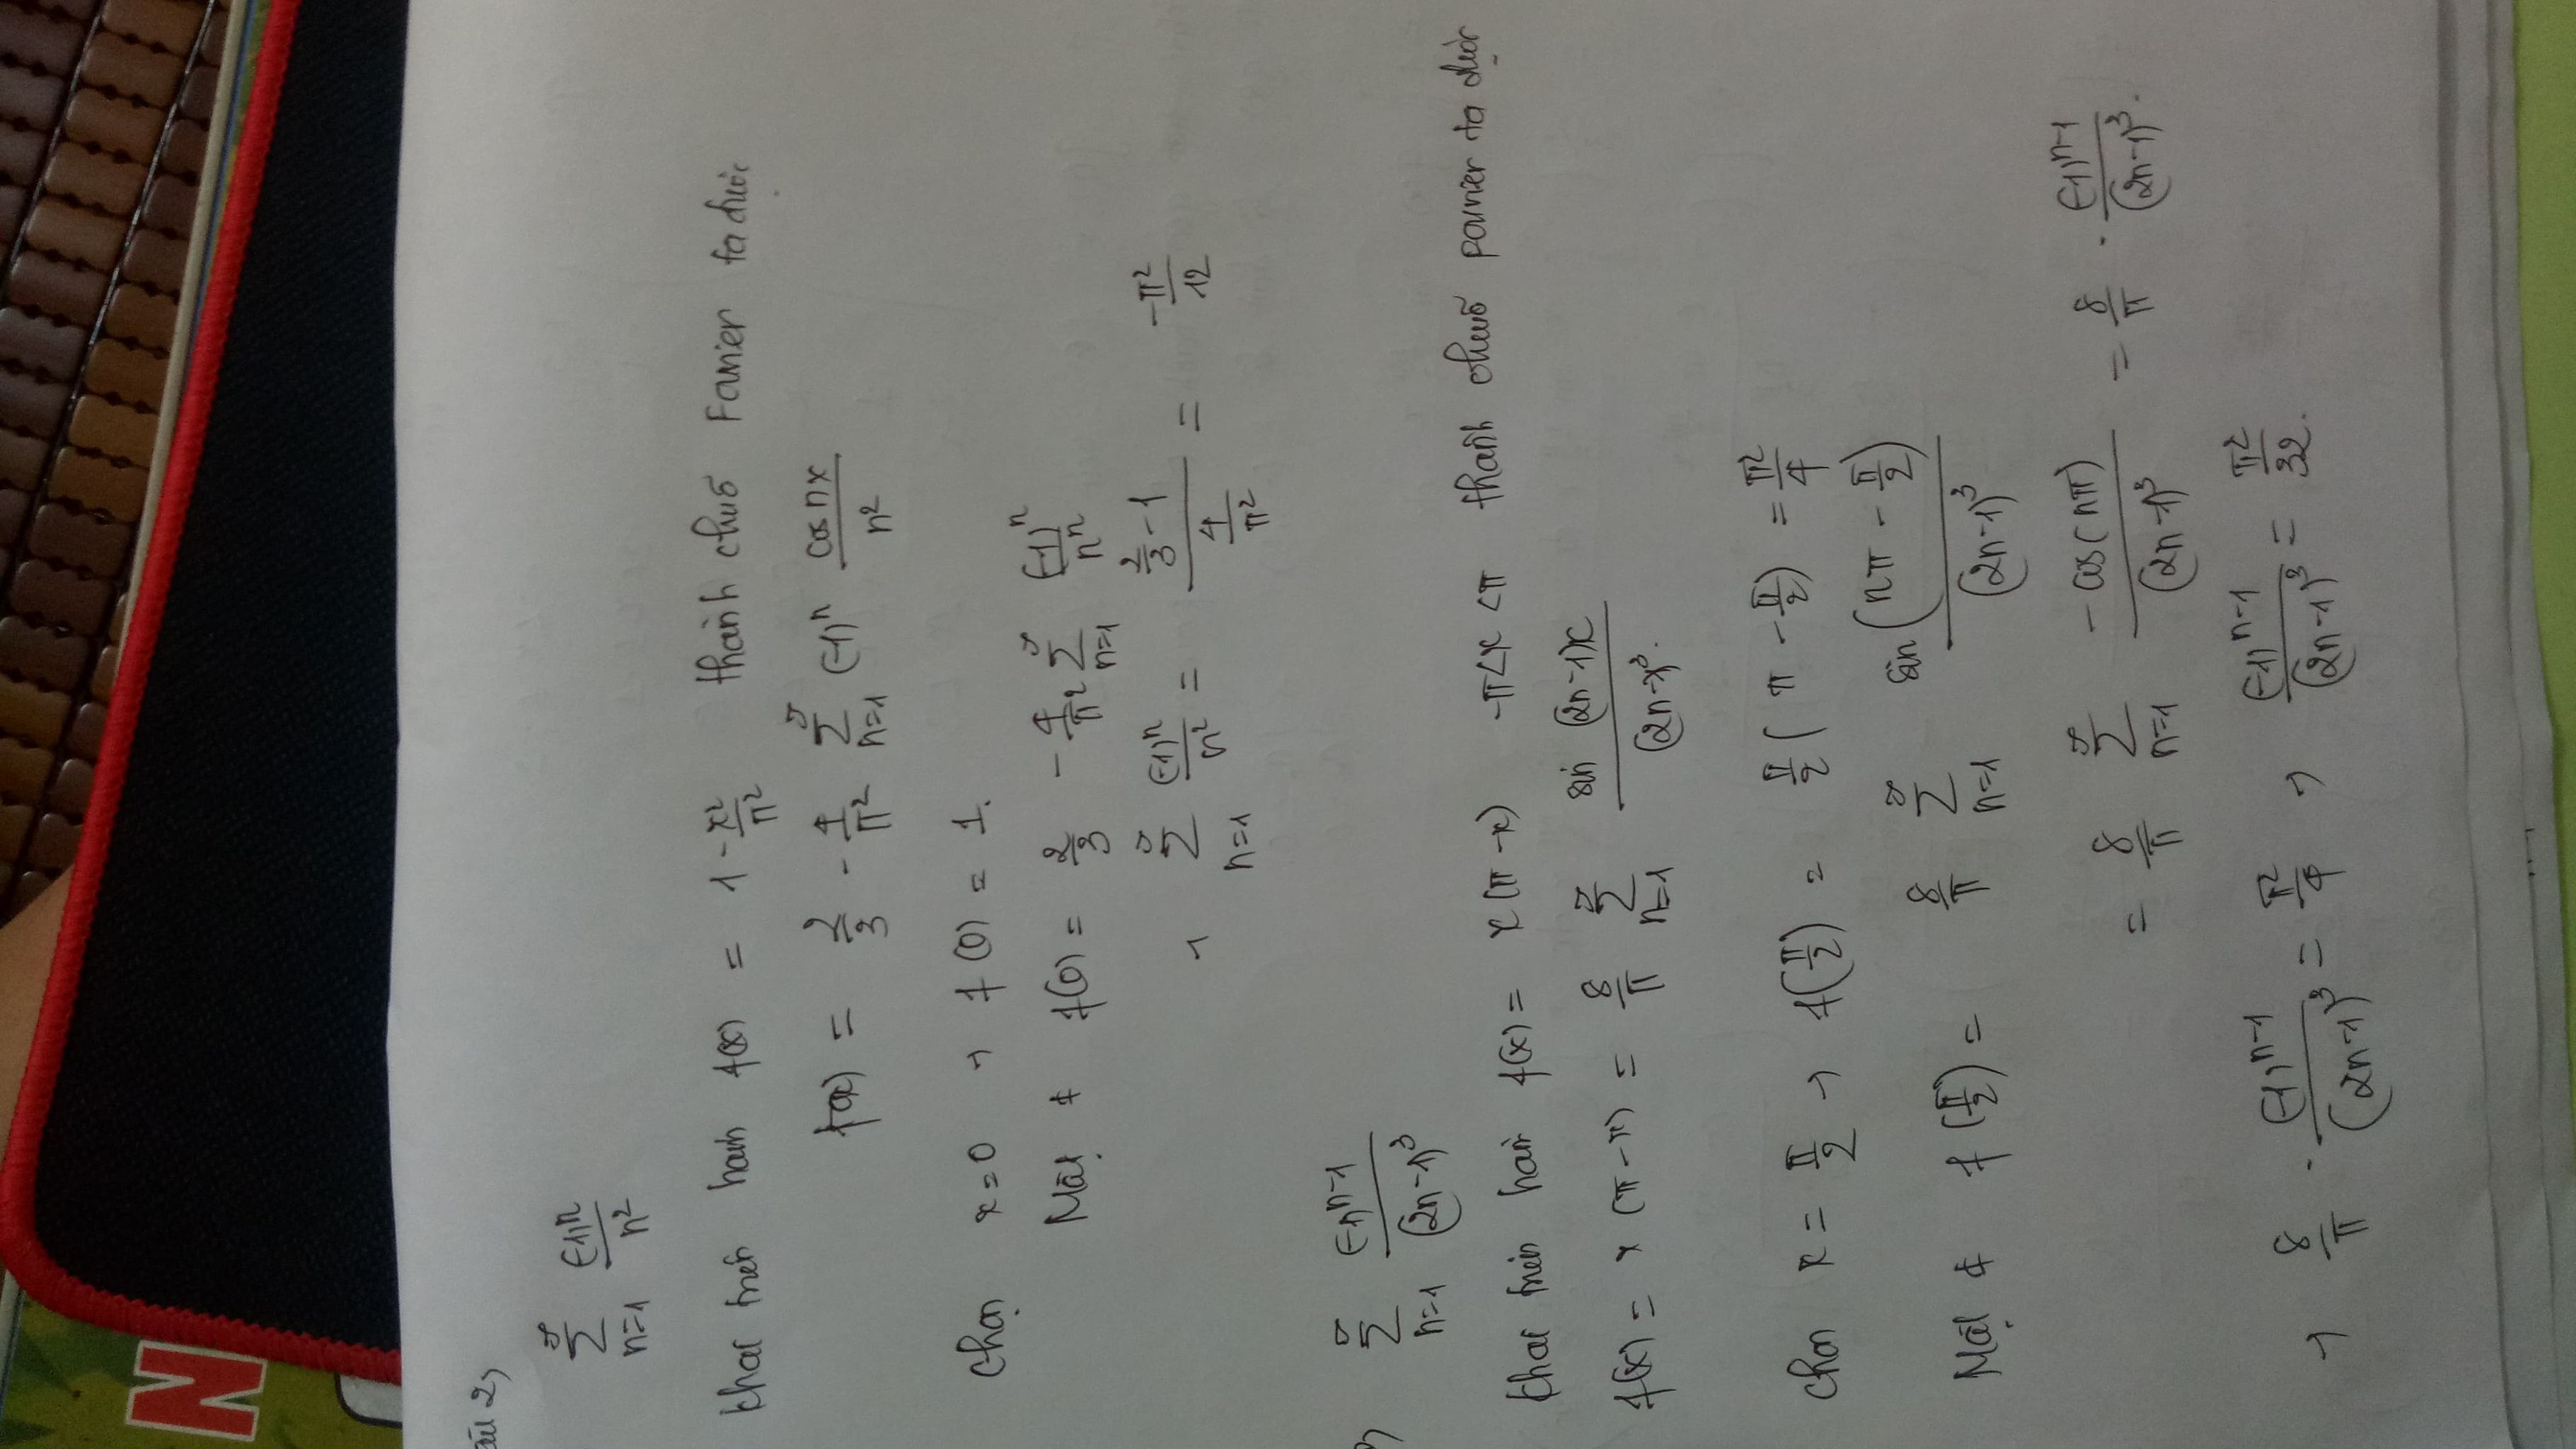 Câu 2,
∑_{n=1}^{∞} (-1)^n / n²
khai triển hàm f(x) = 1 - x²/π² thành chuỗi Fourier ta được
f(x) = 2/3 - 4/π² ∑_{n=1}^{∞} (-1)^n cos nx / n²
chọn x=0 → f(0) = 1.
Mặt ≠ f(0) = 2/3 - 4/π² ∑_{n=1}^{∞} (-1)^n / n^n
→ ∑_{n=1}^{∞} (-1)^n / n² = (2/3 - 1) / (4/π²) = -π²/12
∑_{n=1}^{∞} (-1)^{n-1} / (2n-1)³
khai triển hàm f(x) = x(π-x) -π<x<π thành chuỗi Fourier ta được
f(x) = x(π-x) = 8/π ∑_{n=1}^{∞} sin (2n-1)x / (2n-1)³.
chọn x = π/2 → f(π/2) = π/2 (π - π/2) = π²/4
Mặt ≠ f(π/2) = 8/π ∑_{n=1}^{∞} sin(nπ - π/2) / (2n-1)³
= 8/π ∑_{n=1}^{∞} -cos(nπ) / (2n-1)³ = 8/π . (-1)^{n-1} / (2n-1)³.
→ 8/π . (-1)^{n-1} / (2n-1)³ = π²/4 → (-1)^{n-1} / (2n-1)³ = π²/32.
N